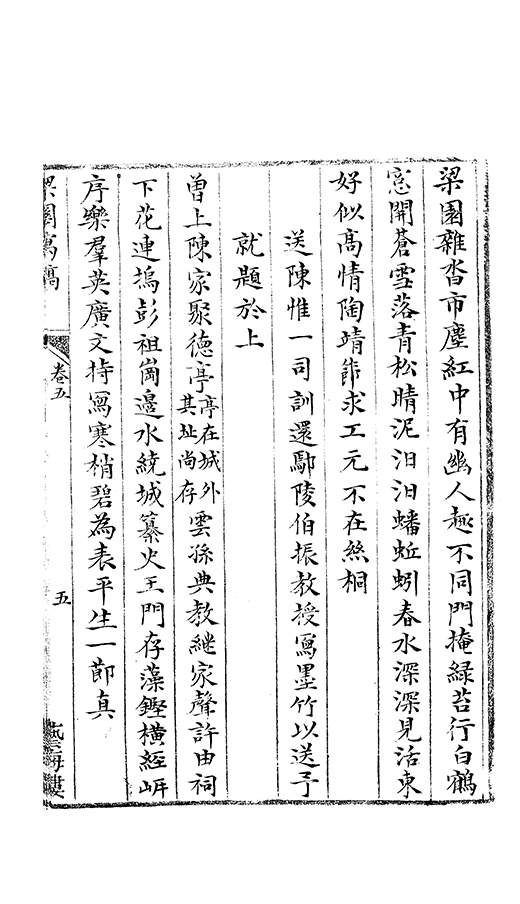 梁園雜沓市塵紅中有幽人趣不同門掩緑苔行白鶴
窓開蒼雪落青松晴泥汩汩蟠蚯蚓春水深深見活東
好似髙情陶靖節求工元不在絲桐
送陳惟一司訓還鄢陵伯振教授冩墨竹以送予
就題於上
曽上陳家聚徳亭亭在城外其址尚存雲孫典教継家聲許由祠
下花連塢彭祖崗邉水繞城纂火王門存藻鏗橫経岍
序樂羣英廣文持冩寒梢碧為表平生一節真
梁園寓稿
卷五
五
藝海樓